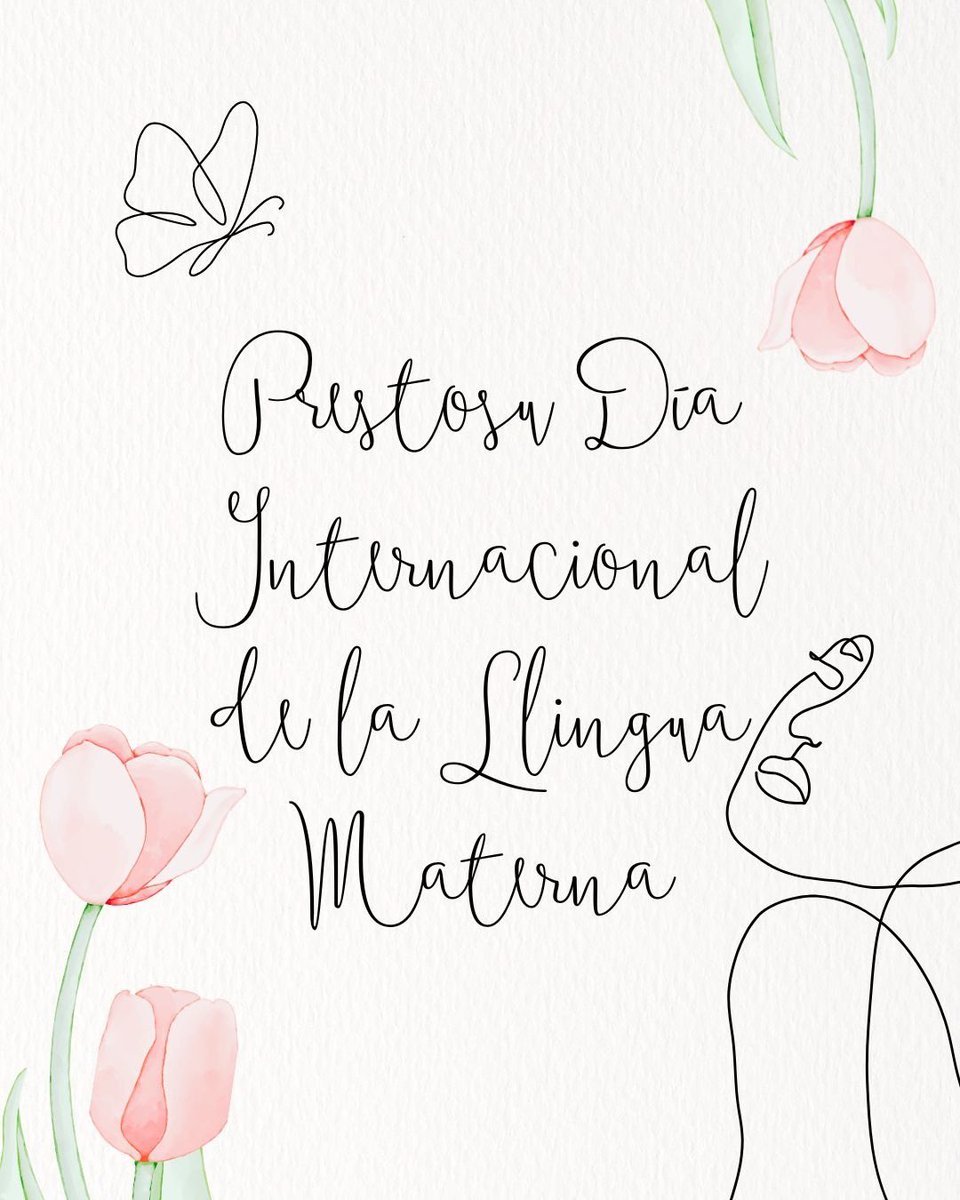 Prestosu Día
Internacional
de la Llingua
Materna